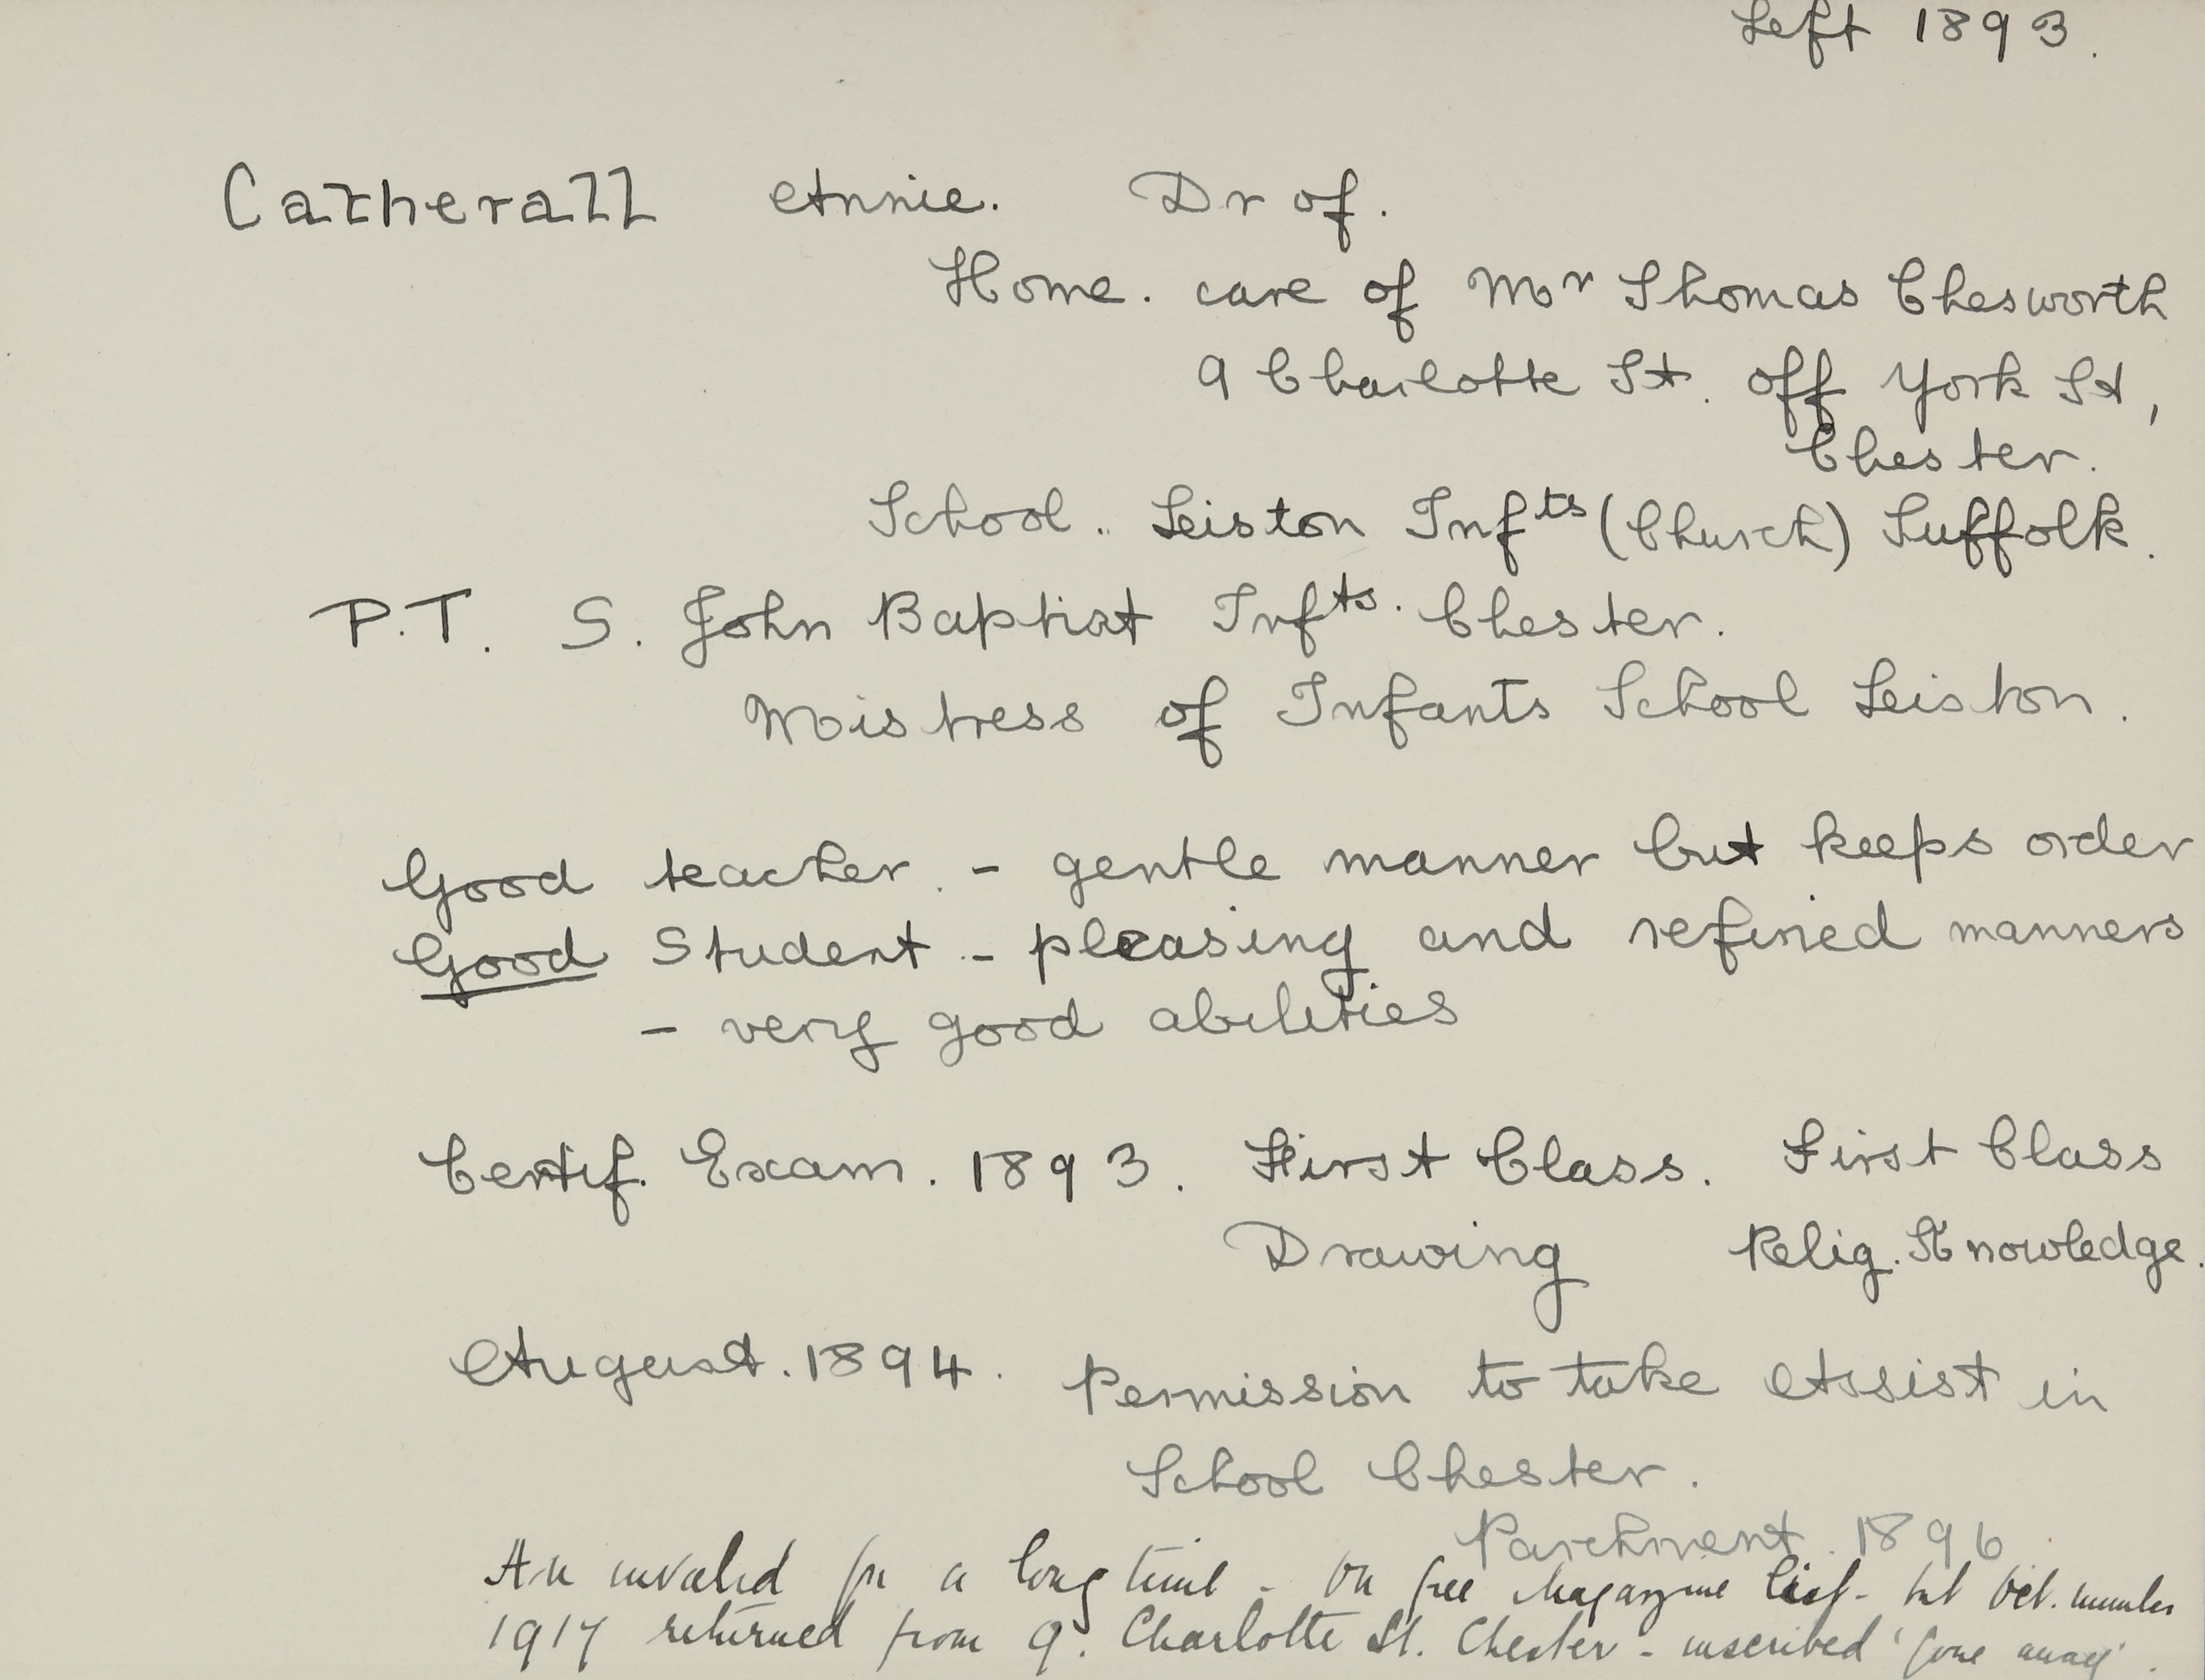 Left 1893.
Catherall Annie. Dr of.
Home. care of Mr Thomas Chesworth
9 Charlotte St. off York St,
Chester.
School.. Leiston Infts (Church) Suffolk.
P.T. S. John Baptist Infts. Chester.
Mistress of Infants School Leiston.
Good teacher. - gentle manner but keeps order
Good Student - pleasing and refined manners
- very good abilities
Certif. Exam. 1893. First Class. First Class
Drawing Relig. Knowledge.
August. 1894. Permission to take Assist in
School Chester.
Parchment. 1896.
An invalid for a long time - on free Magazine list - but Oct. number
1917 returned from 9. Charlotte St. Chester - inscribed 'gone away'.